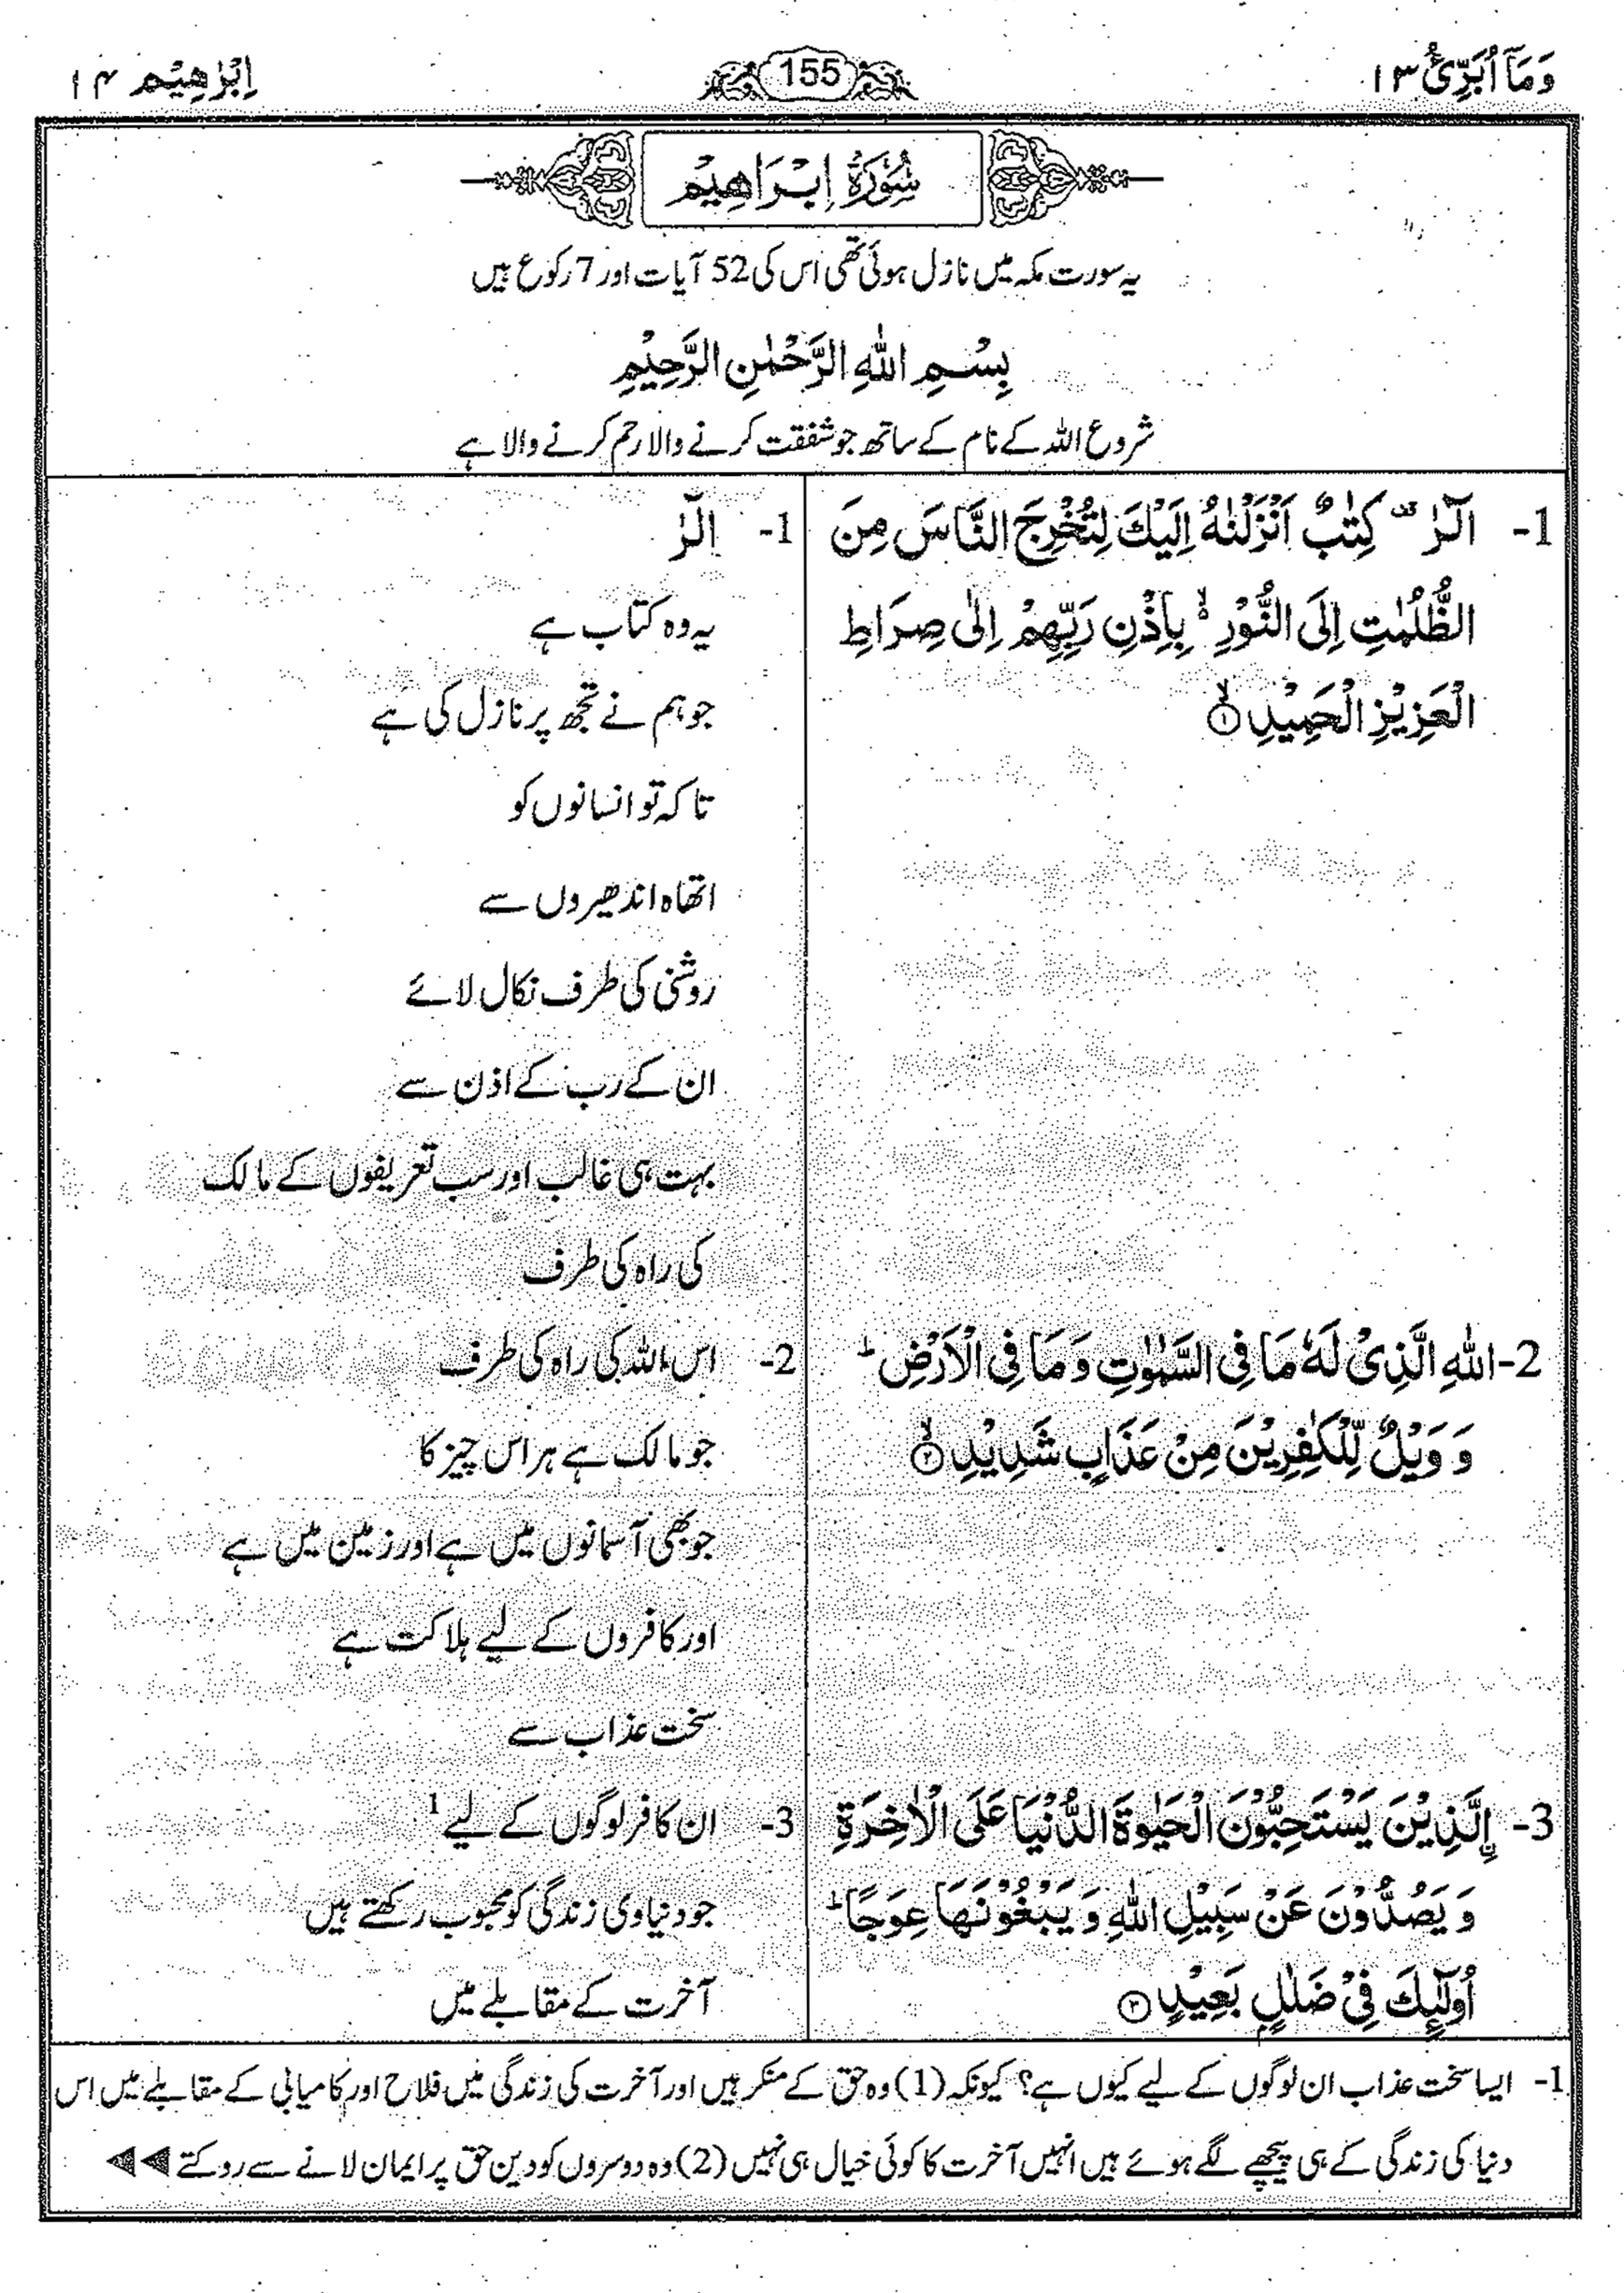 وَمَآ اُبَرِّئُ ۱۳
155
اِبْرٰهِيْم ۱۴
سُوْرَةُ اِبْرَاهِيْمْ
یہ سورت مکہ میں نازل ہوئی تھی اس کی 52 آیات اور 7 رکوع ہیں
بِسْمِ اللّٰهِ الرَّحْمٰنِ الرَّحِيْمِ
شروع اللہ کے نام کے ساتھ جو شفقت کرنے والا رحم کرنے والا ہے
1- الٓرٰ ۟ كِتٰبٌ اَنْزَلْنٰهُ اِلَيْكَ لِتُخْرِجَ النَّاسَ مِنَ
الظُّلُمٰتِ اِلَى النُّوْرِ ۙ۬ بِاِذْنِ رَبِّهِمْ اِلٰى صِرَاطِ
الْعَزِيْزِ الْحَمِيْدِ ۙ ۱
1- الٓرٰ
یہ وہ کتاب ہے
جو ہم نے تجھ پر نازل کی ہے
تاکہ تو انسانوں کو
اتھاہ اندھیروں سے
روشنی کی طرف نکال لائے
ان کے رب کے اذن سے
بہت ہی غالب اور سب تعریفوں کے مالک
کی راہ کی طرف
2- اللّٰهِ الَّذِيْ لَهٗ مَا فِي السَّمٰوٰتِ وَ مَا فِي الْاَرْضِ ؕ
وَ وَيْلٌ لِّلْكٰفِرِيْنَ مِنْ عَذَابٍ شَدِيْدِ ۙ ۲
2- اس اللہ کی راہ کی طرف
جو مالک ہے ہر اس چیز کا
جو بھی آسمانوں میں ہے اور زمین میں ہے
اور کافروں کے لیے ہلاکت ہے
سخت عذاب سے
3- اِ۟لَّذِيْنَ يَسْتَحِبُّوْنَ الْحَيٰوةَ الدُّنْيَا عَلَى الْاٰخِرَةِ
وَ يَصُدُّوْنَ عَنْ سَبِيْلِ اللّٰهِ وَ يَبْغُوْنَهَا عِوَجًا ؕ
اُولٰٓئِكَ فِيْ ضَلٰلٍۭ بَعِيْدٍ ۳
3- ان کافر لوگوں کے لیے 1
جو دنیاوی زندگی کو محبوب رکھتے ہیں
آخرت کے مقابلے میں
1- ایسا سخت عذاب ان لوگوں کے لیے کیوں ہے؟ کیونکہ (1) وہ حق کے منکر ہیں اور آخرت کی زندگی میں فلاح اور کامیابی کے مقابلے میں اس
دنیا کی زندگی کے ہی پیچھے لگے ہوئے ہیں انہیں آخرت کا کوئی خیال ہی نہیں (2) وہ دوسروں کو دین حق پر ایمان لانے سے روکتے ◄◄